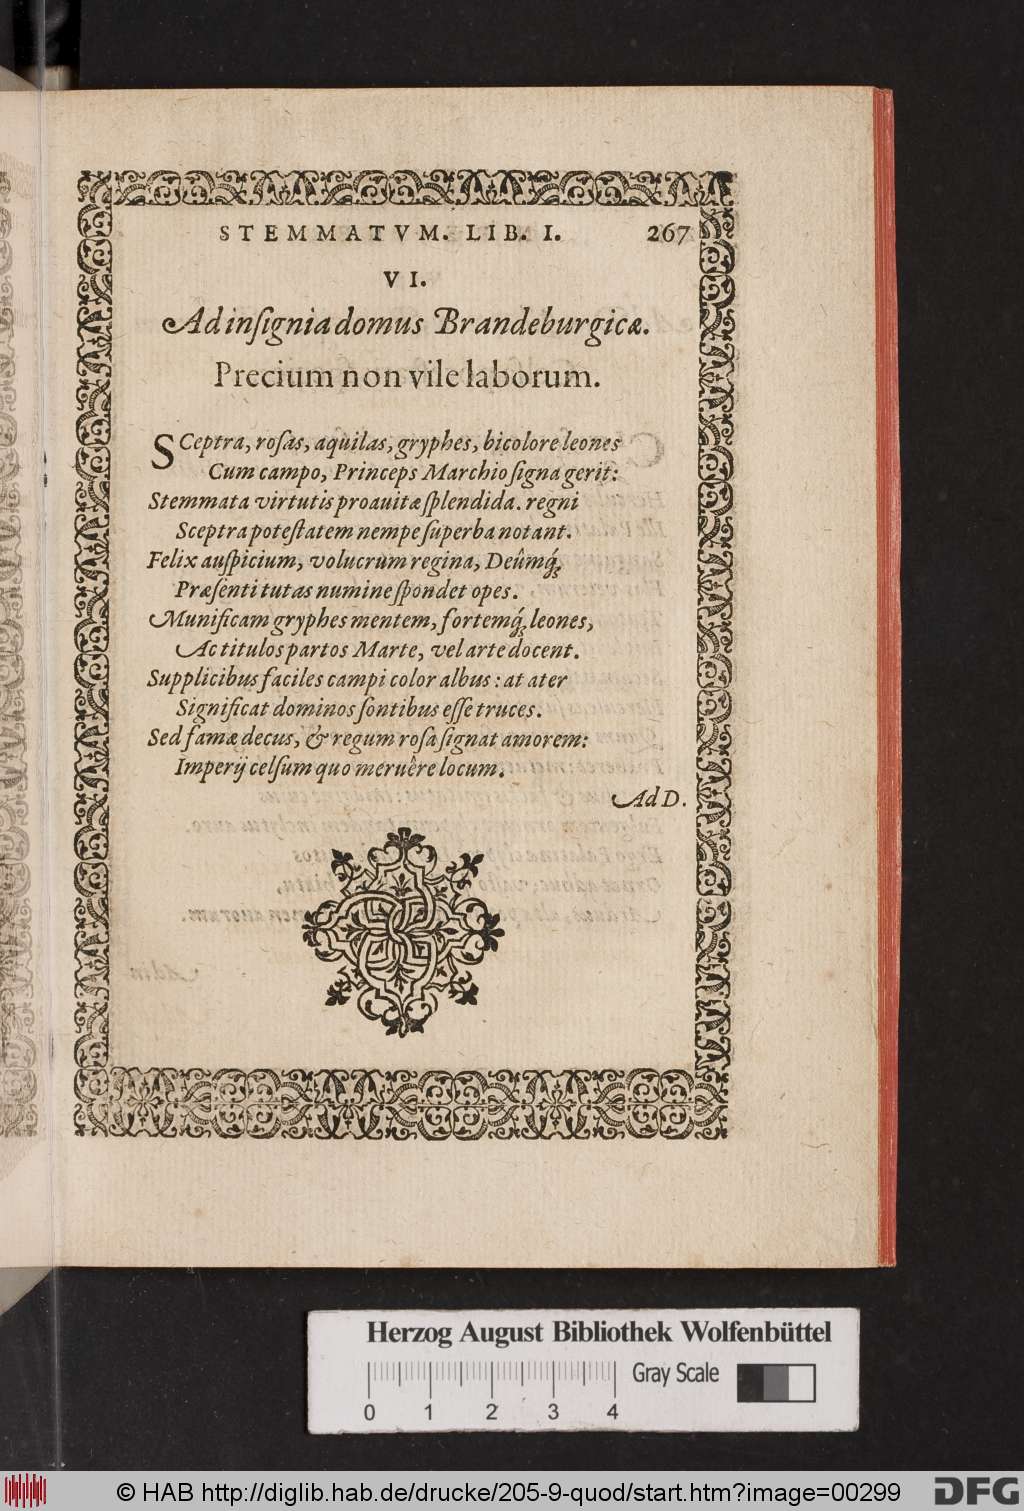 STEMMATVM. LIB. I. 267
VI.
Ad inſignia domus Brandeburgicæ.
Precium non vile laborum.
SCeptra, roſas, aquilas, gryphes, bicolore leones
Cum campo, Princeps Marchio ſigna gerit:
Stemmata virtutis proauitæ ſplendida. regni
Sceptra poteſtatem nempe ſuperba notant.
Felix auſpicium, volucrum regina, Deûmq́;
Præſenti tutas numine ſpondet opes.
Munificam gryphes mentem, fortemq́; leones,
Ac titulos partos Marte, vel arte docent.
Supplicibus faciles campi color albus: at ater
Significat dominos ſontibus eſſe truces.
Sed famæ decus, & regum roſa ſignat amorem:
Imperij celſum quo meruêre locum.
Ad D.
Herzog August Bibliothek Wolfenbüttel
Gray Scale
0 1 2 3 4
© HAB http://diglib.hab.de/drucke/205-9-quod/start.htm?image=00299
DFG